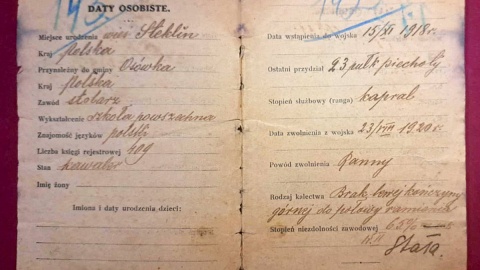 DATY OSOBISTE.
Miejsce urodzenia wieś Steklin
Kraj polska
Przynależny do gminy Osówka
Kraj polska
Zawód stolarz
Wykształcenie szkoła powszechna
Znajomość języków polski
Liczba księgi rejestrowej 409
Stan kawaler
Imię żony
Imiona i daty urodzenia dzieci:
Data wstąpienia do wojska 15/XI 1918 r.
Ostatni przydział 23 pułk piechoty
Stopień służbowy (ranga) kapral
Data zwolnienia z wojska 23/VIII 1920 r.
Powód zwolnienia Ranny
Rodzaj kalectwa Brak lewej kończyny
górnej do połowy ramienia
Stopień niezdolności zawodowej 65%
Stała.